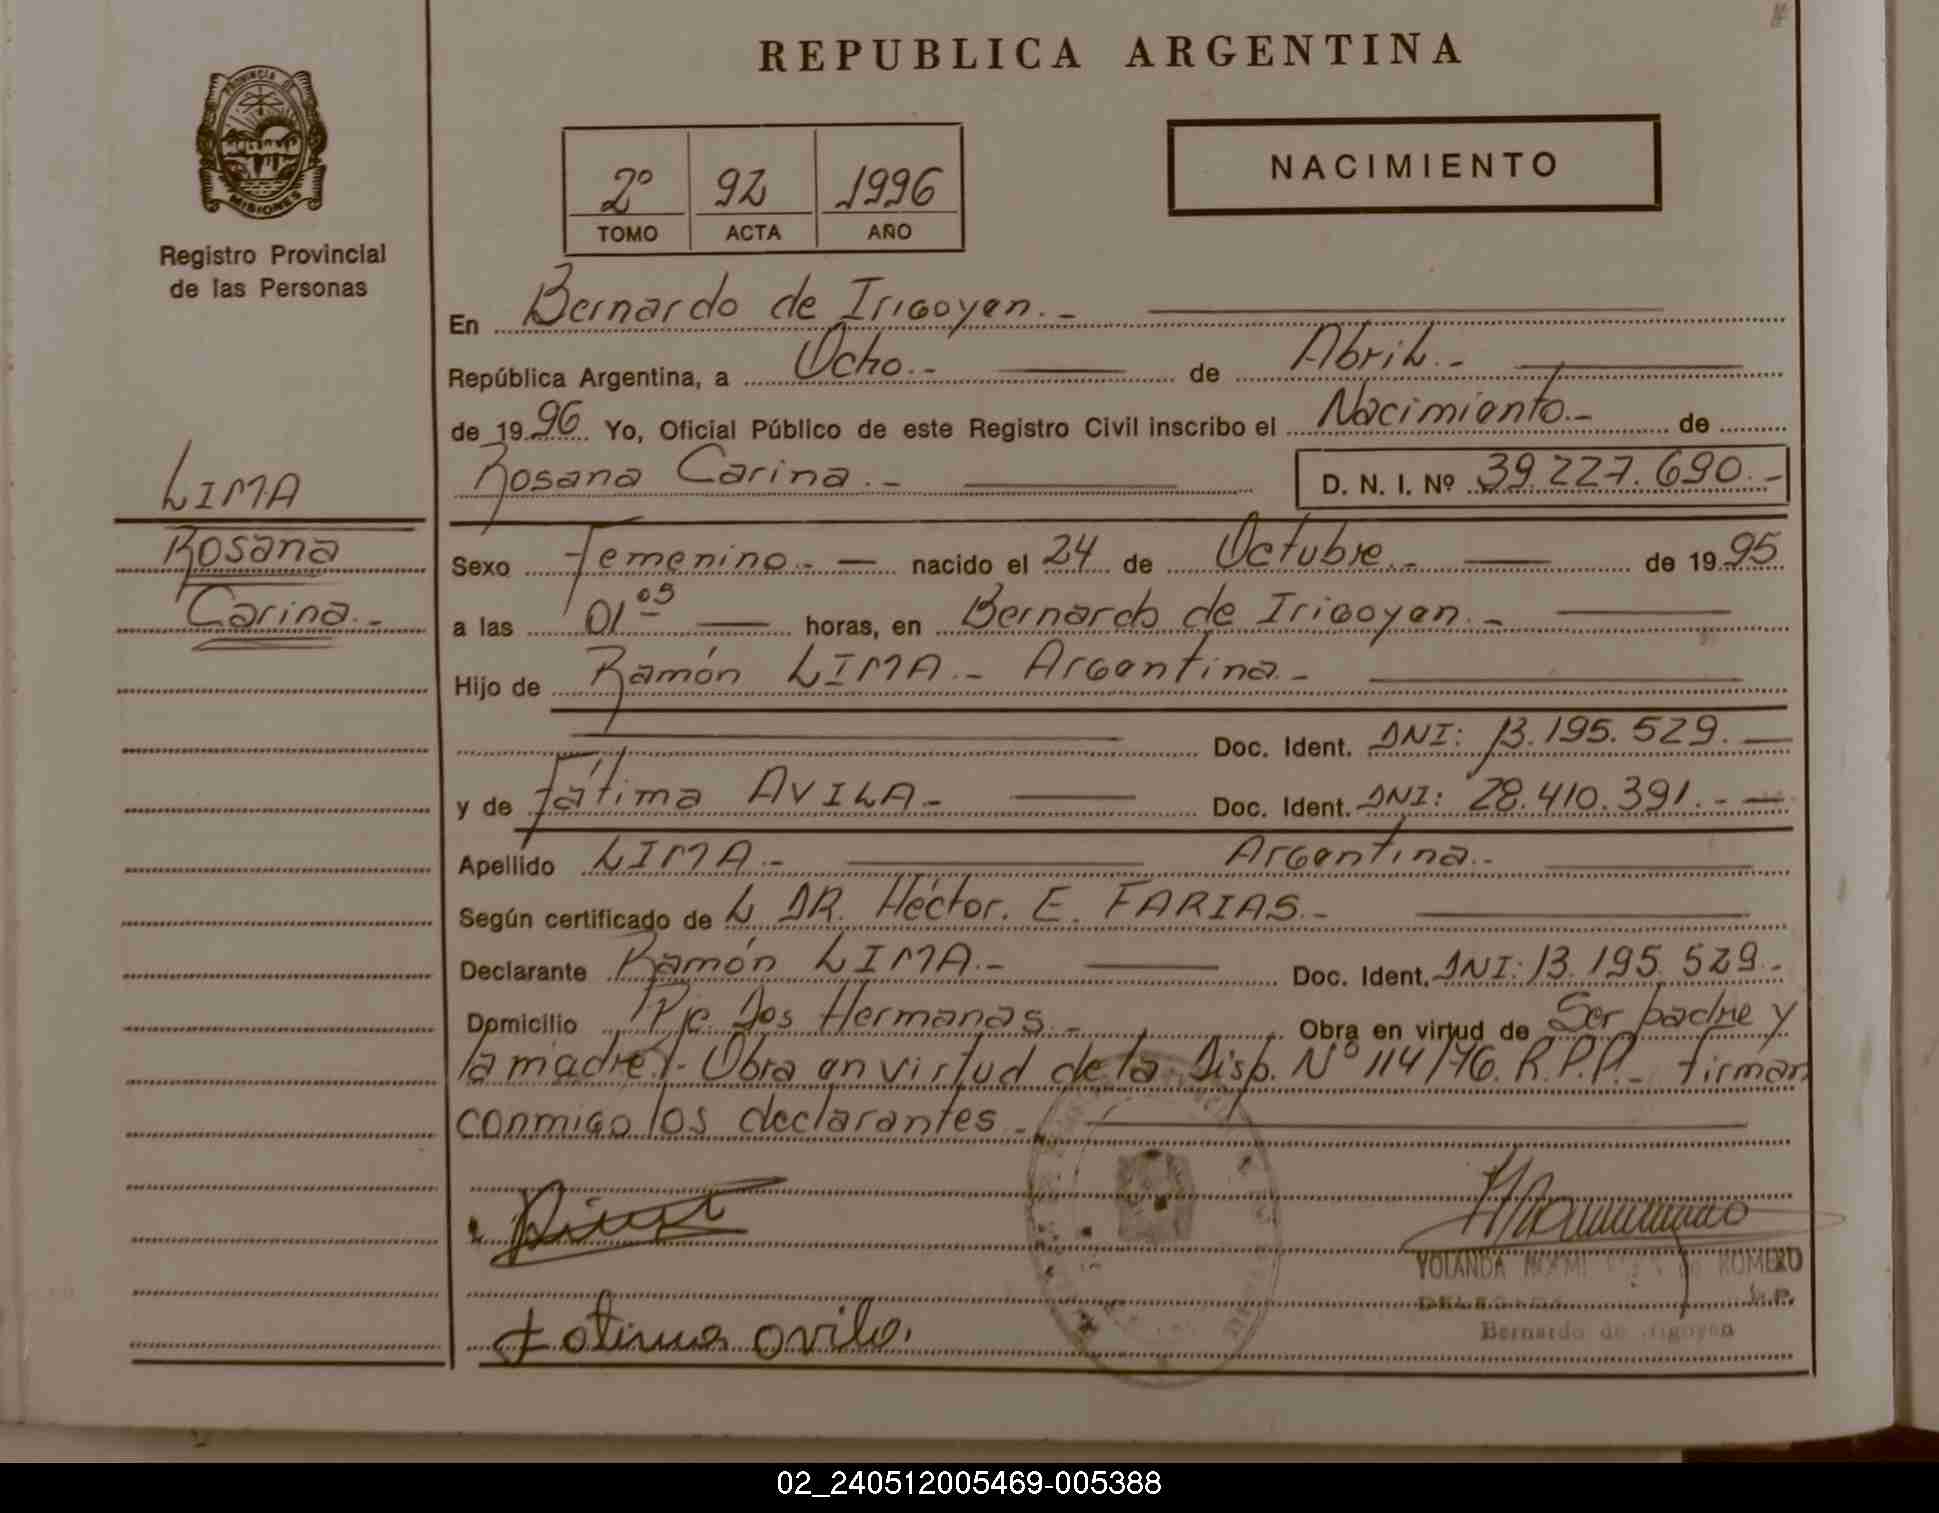 REPUBLICA ARGENTINA
PROVINCIA DE
MISIONES
Registro Provincial
de las Personas
2º 92 1996
TOMO ACTA AÑO
NACIMIENTO
En Bernardo de Irigoyen.-
República Argentina, a Ocho.- de Abril.-
de 1996 Yo, Oficial Público de este Registro Civil inscribo el Nacimiento.- de
Rosana Carina.- D. N. I. Nº 39.227.690.-
LIMA
Rosana
Carina.-
Sexo Femenino.- nacido el 24 de Octubre.- de 1995
a las 01 05 horas, en Bernardo de Irigoyen.-
Hijo de Ramón LIMA.- Argentina.-
Doc. Ident. DNI: 13.195.529.
y de Fátima AVILA.- Doc. Ident. DNI: 28.410.391.-
Apellido LIMA.- Argentina.-
Según certificado de L DR. Héctor. E. FARIAS.-
Declarante Ramón LIMA.- Doc. Ident. DNI: 13.195.529.-
Domicilio Pje. Dos Hermanas.- Obra en virtud de Ser padre y
la madre.- Obra en virtud de la Disp. Nº 114/76. R.P.P.- firman
conmigo los declarantes.-
YOLANDA ROMERO
DELEGADA
Fatima avila.
Bernardo de Irigoyen
02_240512005469-005388